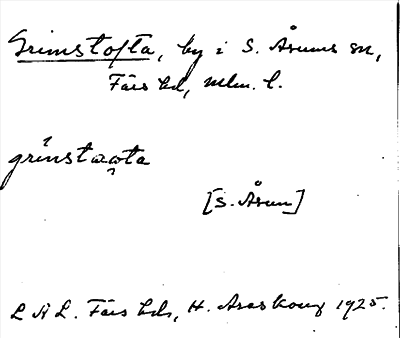 Grimstofta, by i S. Åsums sn,
Färs hd, Mlm. l.
grinstaota
[S. Åsum]
L A L. Färs hd, H. Areskoug 1925.